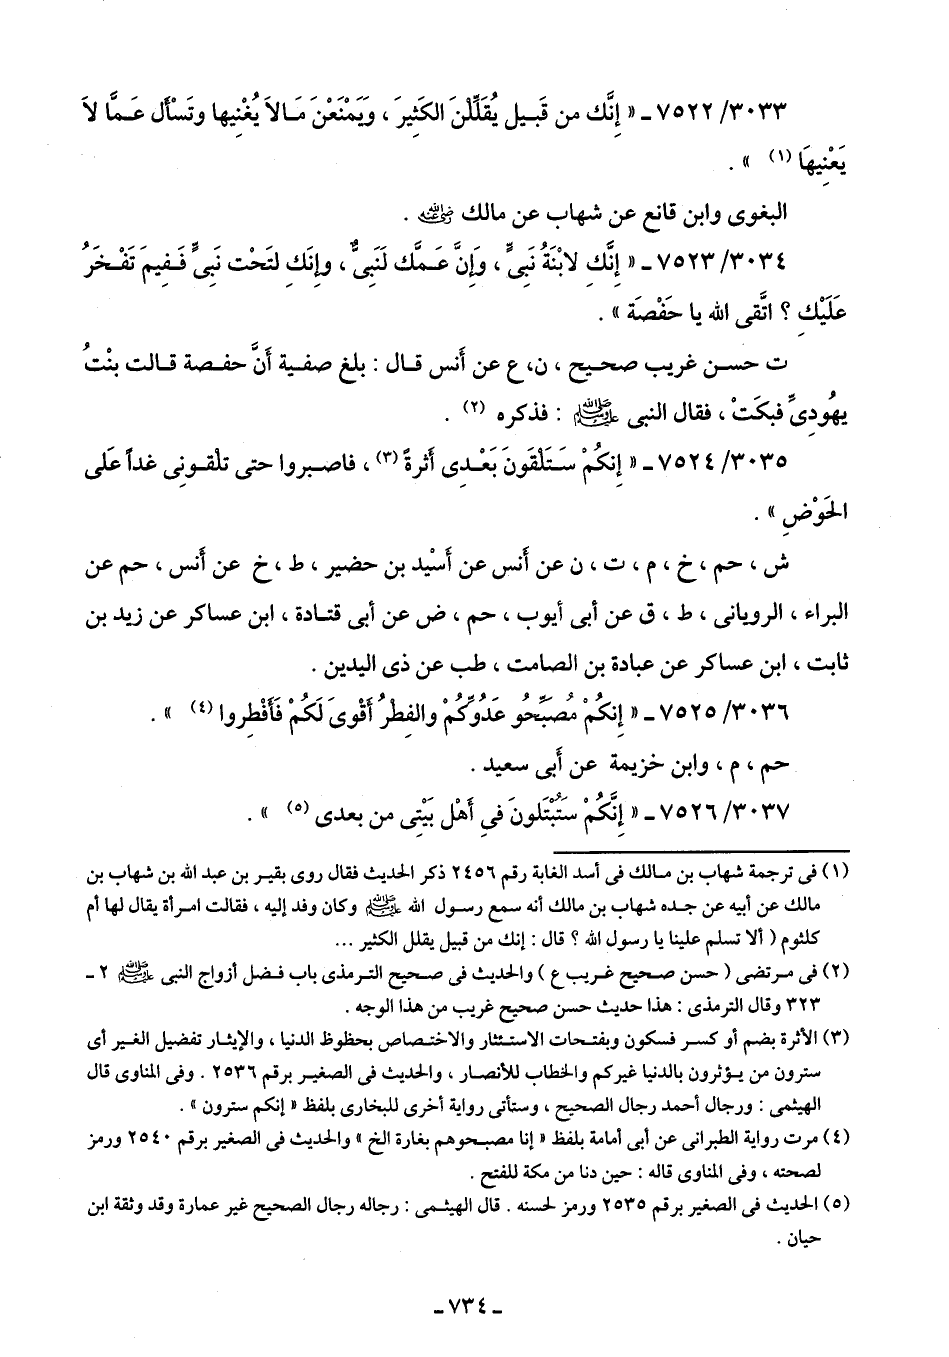 ٧٥٢٢/٣٠٣٣ ـ « إِنَّكِ من قَبِيلٍ يُقَلِّلْنَ الكَثِيرَ ، وَيَمْنَعْنَ مَالاَ يُغْنِيها وتَسْأَل عَمَّا لاَ
يَعْنِيهَا (١) » .
البغوى وابن قانع عن شهاب عن مالك رضي الله عنه .
٧٥٢٣/٣٠٣٤ ـ « إِنَّكِ لابْنَةُ نَبِىٍّ ، وَإِنَّ عَمَّكِ لَنَبِىٌّ ، وإِنَكِ لتَحْت نَبِىٍّ فَفِيمَ تَفْخَرُ
عَلَيْكِ ؟ اتَّقى الله يا حَفْصَة » .
ت حسن غريب صحيح ، ن، ع عن أَنس قال : بلغ صفية أَنَّ حفصة قالت بنْتُ
يهُودِىٍّ فبكَتْ ، فقال النبى ﷺ : فذكره (٢) .
٧٥٢٤/٣٠٣٥ ـ « إِنكُمْ سَتَلَقونَ بَعْدِى أثرةً (٣) ، فاصبروا حتى تلقونى غداً عَلَى
الحَوْضِ » .
ش ، حم ، خ ، م ، ت ، ن عن أَنس عن أُسَيْد بن حضير ، ط ، خ عن أَنس ، حم عن
البراء ، الرويانى ، ط ، ق عن أبى أيوب ، حم ، ض عن أبى قتادة ، ابن عساكر عن زيد بن
ثابت ، ابن عساكر عن عبادة بن الصامت ، طب عن ذى اليدين .
٧٥٢٥/٣٠٣٦ ـ « إِنكُمْ مُصَبِّحُو عَدُوِّكُمْ والفِطْرُ أَقْوىَ لَكُمْ فَأَفْطِروا (٤) » .
حم ، م ، وابن خزيمة عن أَبى سعيد .
٧٥٢٦/٣٠٣٧ ـ « إِنَّكُمْ سَتُبْتَلونَ فىِ أَهْل بَيْتِى من بعدى (٥) » .
(١) فى ترجمة شهاب بن مالك فى أسد الغابة رقم ٢٤٥٦ ذكر الحديث فقال روى بقير بن عبد الله بن شهاب بن
مالك عن أبيه عن جده شهاب بن مالك أنه سمع رسول الله ﷺ وكان وفد إليه ، فقالت امرأة يقال لها أم
كلثوم ( ألا تسلم علينا يا رسول الله ؟ قال : إنك من قبيل يقلل الكثير ...
(٢) فى مرتضى ( حسن صحيح غريب ع ) والحديث فى صحيح الترمذى باب فضل أزواج النبى ﷺ ٢ ـ
٣٢٣ وقال الترمذى : هذا حديث حسن صحيح غريب من هذا الوجه .
(٣) الأثرة بضم أو كسر فسكون وبفتحات الاستئثار والاختصاص بحظوظ الدنيا ، والإيثار تفضيل الغير أى
سترون من يؤثرون بالدنيا غيركم والخطاب للأنصار ، والحديث فى الصغير برقم ٢٥٣٦ . وفى المناوى قال
الهيثمى : ورجال أحمد رجال الصحيح ، وستأتى رواية أخرى للبخارى بلفظ « إنكم سترون » .
(٤) مرت رواية الطبرانى عن أبى أمامة بلفظ « إنا مصبحوهم بغارة الخ » والحديث فى الصغير برقم ٢٥٤٠ ورمز
لصحته ، وفى المناوى قاله : حين دنا من مكة للفتح .
(٥) الحديث فى الصغير برقم ٢٥٣٥ ورمز لحسنه . قال الهيثمى : رجاله رجال الصحيح غير عمارة وقد وثقة ابن
حيان .
ـ ٧٣٤ ـ